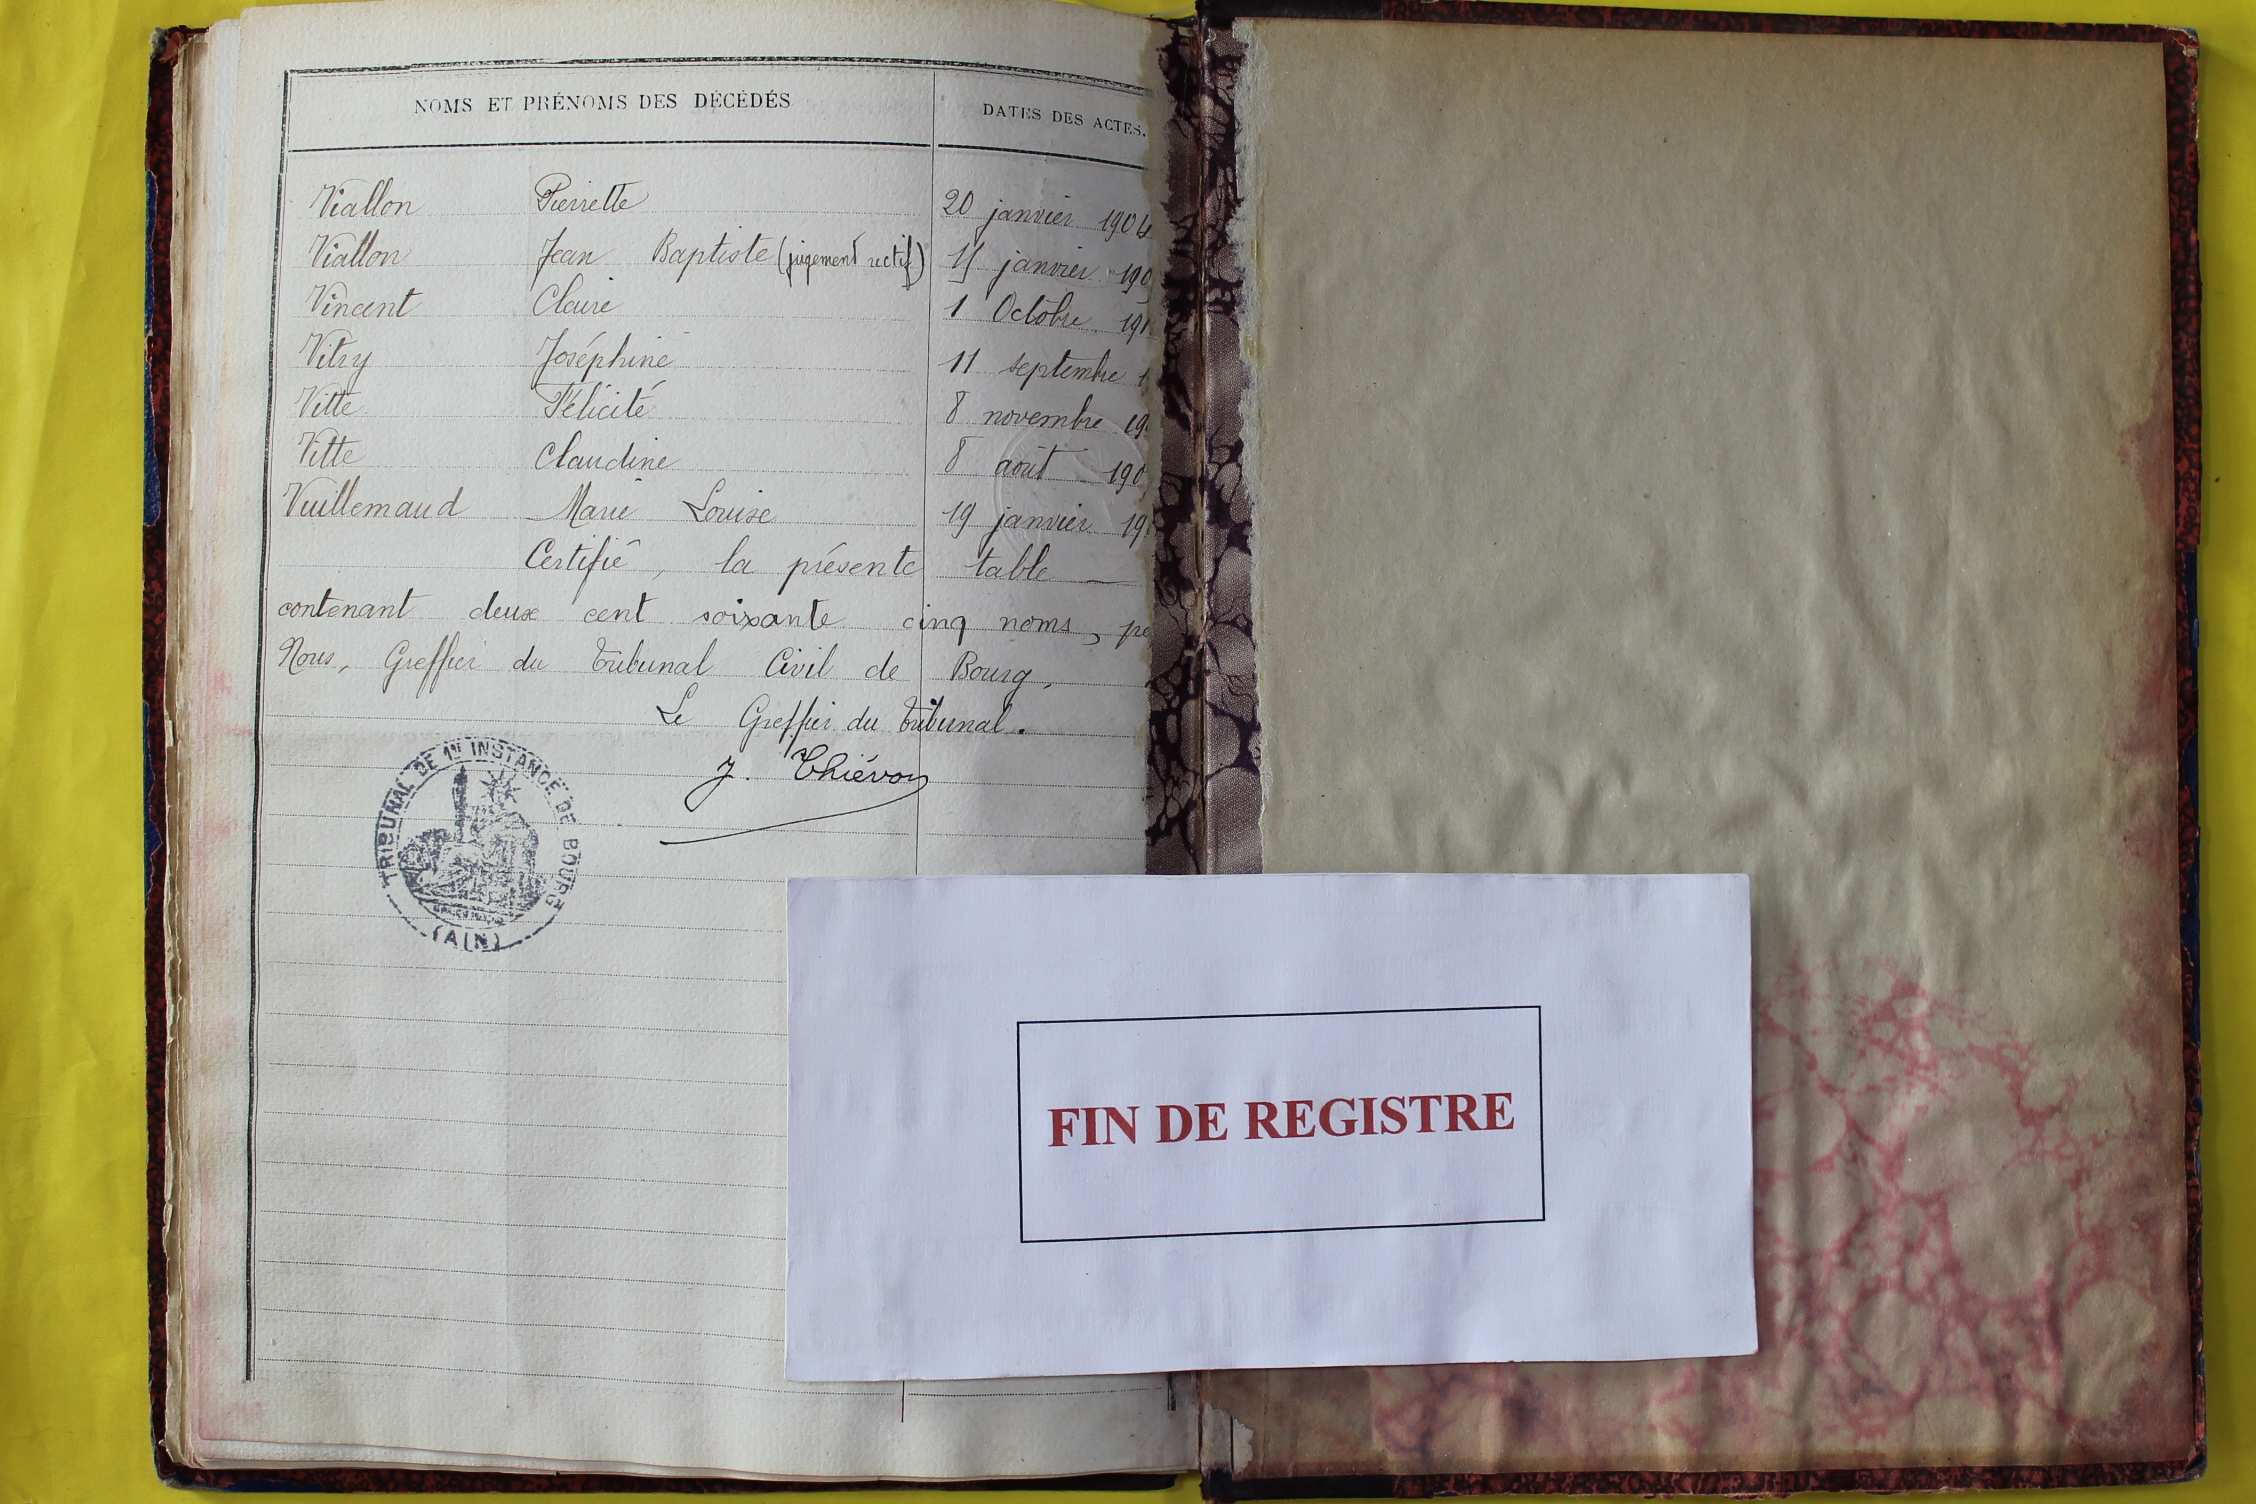 NOMS ET PRÉNOMS DES DÉCÉDÉS DATES DES ACTES.
Viallon Pierrette 20 janvier 1904
Viallon Jean Baptiste (jugement rectif) janvier 190
Vincent Claire 1 Octobre 191
Vitry Joséphine 11 septembre 1
Vitte Félicité 8 novembre 19
Vitte Claudine 8 août 190
Vuillemaud Marie Louise 19 janvier 19
Certifié, la présente table —
contenant deux cent soixante cinq noms, p
Nous, Greffier du Tribunal Civil de Bourg,
Le Greffier du Tribunal.
J. Thiévon
TRIBUNAL DE 1re INSTANCE DE BOURG
(AIN)
FIN DE REGISTRE